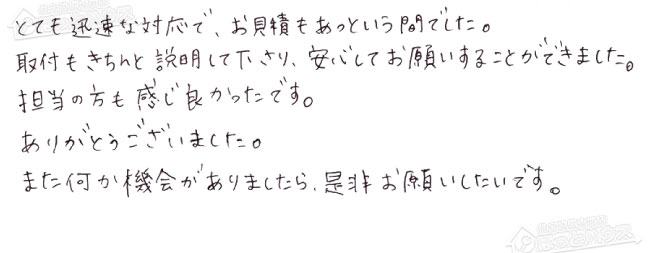 とても迅速な対応で、お見積もあっという間でした。
取付もきちんと説明して下さり、安心してお願いすることができました。
担当の方も感じ良かったです。
ありがとうございました。
また何か機会がありましたら、是非お願いしたいです。